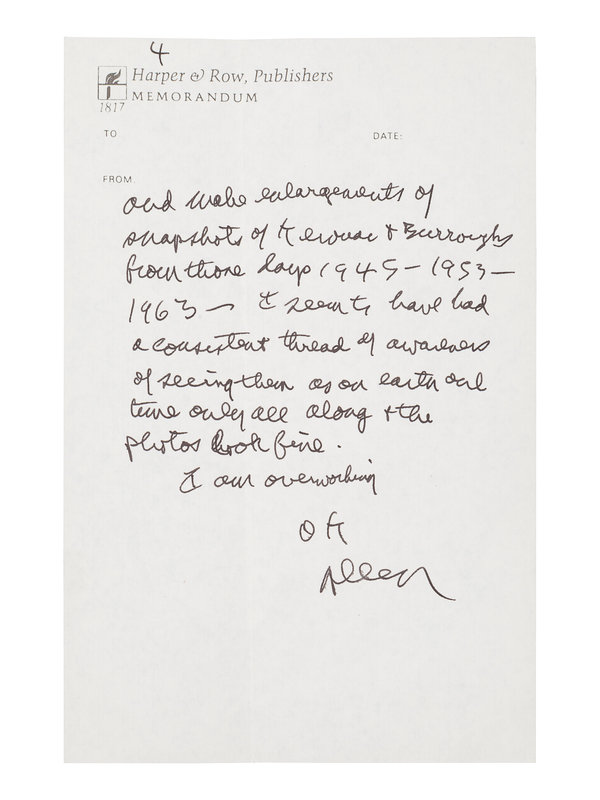 4
Harper & Row, Publishers
MEMORANDUM
1817
TO
DATE:
FROM
and make enlargements of
snapshots of Kerouac & Burroughs
from those days 1945 – 1953 –
1963 – I seem to have had
a consistent thread of awareness
of seeing them as on earth one
time only all along & the
photos look fine.
I am overworking
OK
Allen